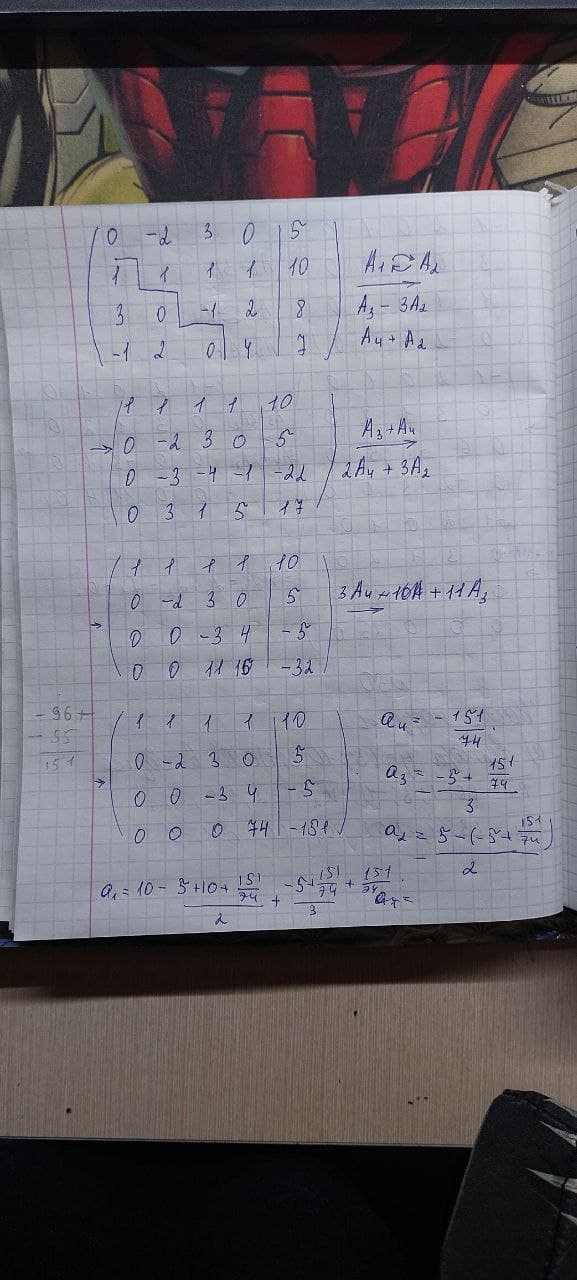 0 -2 3 0 | 5
1 1 1 1 | 10
3 0 -1 2 | 8
-1 2 0 4 | 7
A₁ ⇄ A₂
A₃ - 3A₂
A₄ + A₂
→ 1 1 1 1 | 10
0 -2 3 0 | 5
0 -3 -4 -1 | -22
0 3 1 5 | 17
A₃ + A₄
2A₄ + 3A₂
→ 1 1 1 1 | 10
0 -2 3 0 | 5
0 0 -3 4 | -5
0 0 11 10 | -32
3A₄ + 11A₃
-96+
-55
151
→ 1 1 1 1 | 10
0 -2 3 0 | 5
0 0 -3 4 | -5
0 0 0 74 | -151
a₄ = -151/74.
a₃ = (-5 + 151/74)/3
a₂ = (5-(-5+151/74))/2
a₁ = 10 - (5+10+151/74)/2 + (-5+151/74)/3 + 151/74.